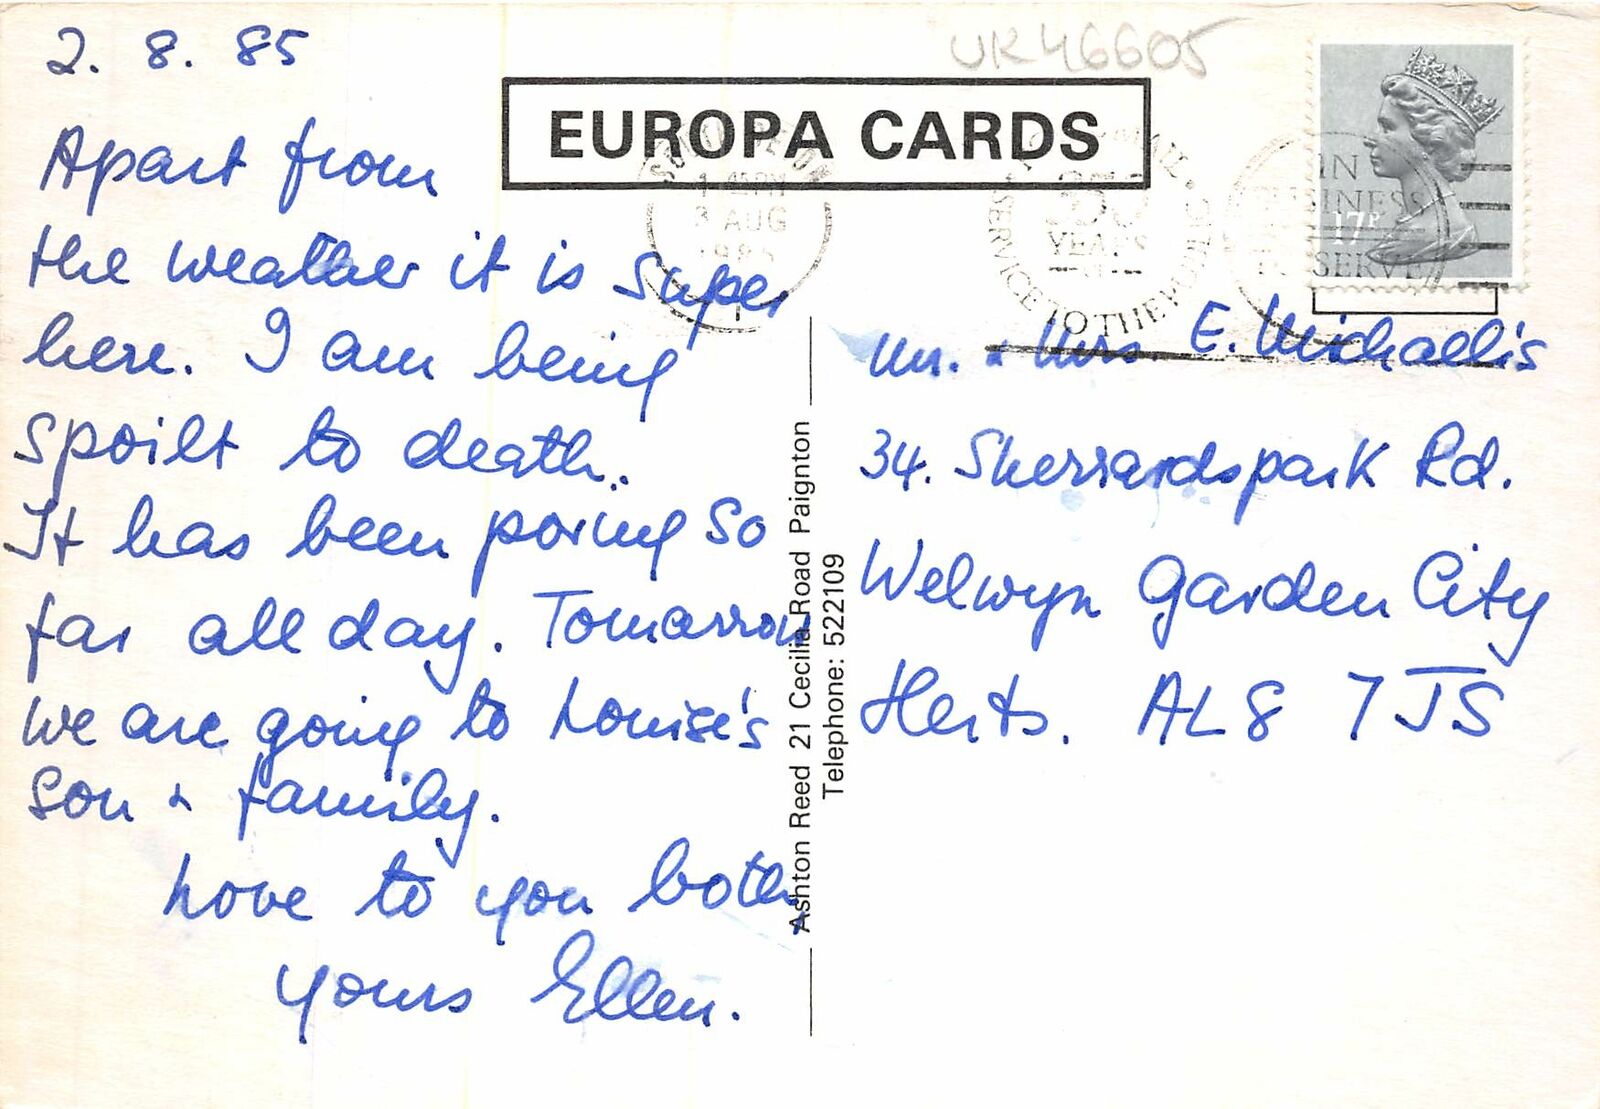 2. 8. 85
Apart from
the weather it is super
here. I am being
spoilt to death.
It has been poring so
far all day. Tomarrow
we are going to Louise's
son & family.
Love to you both,
yours Ellen.
UK46605
EUROPA CARDS
3 AUG
1985
YEARS
SERVICE TO THE PUBLIC
IN
BUSINESS
SERVE
17P
Mr. & Mrs. E. Michaelis
34. Sherrardspark Rd.
Welwyn Garden City
Herts. AL8 7JS
Ashton Reed 21 Cecilia Road Paignton
Telephone: 522109